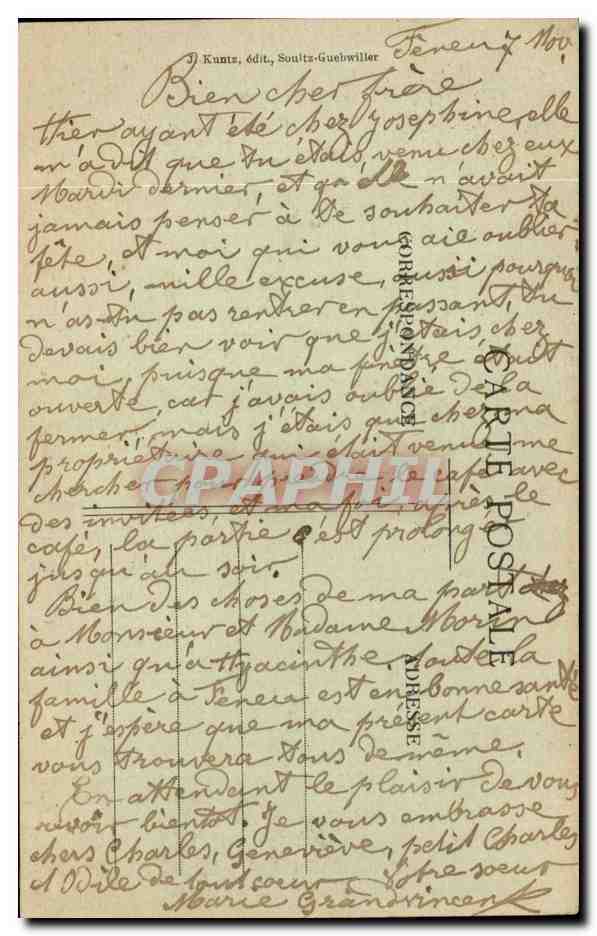 J. Kuntz, édit., Soultz-Guebwiller
Feneu 7 Nov.
Bien cher frère
Hier ayant été chez Josephine, elle
m'a dit que tu étais venu chez eux
Mardi dernier, et qu'elle n'avait
jamais penser à te souhaiter ta
fête, et moi qui vous aie oublier
aussi, mille excuse, aussi pourquoi
n'as-tu pas rentrer en passant, tu
devais bien voir que j'étais chez
moi, puisque ma fenêtre était
ouverte, car j'avais oublié de la
fermer, mais j'étais que chez ma
propriétaire qui était venue me
chercher pour prendre le café avec
des invitées, et ma foi, après le
café, la partie c'est prolongé
jusqu'au soir.
Bien des choses de ma part
à Monsieur et Madame Morin
ainsi qu'a Hyacinthe. toute la
famille à Feneu est en bonne santé
et j'espère que ma présent carte
vous trouvera tous de même.
En attendant le plaisir de vous
revoir bientot. Je vous embrasse
chers Charles, Geneviève, petit Charles
et Odile de tout coeur Votre soeur
Marie Grandvincent
CARTE POSTALE
CORRESPONDANCE
ADRESSE
CPAPHIL